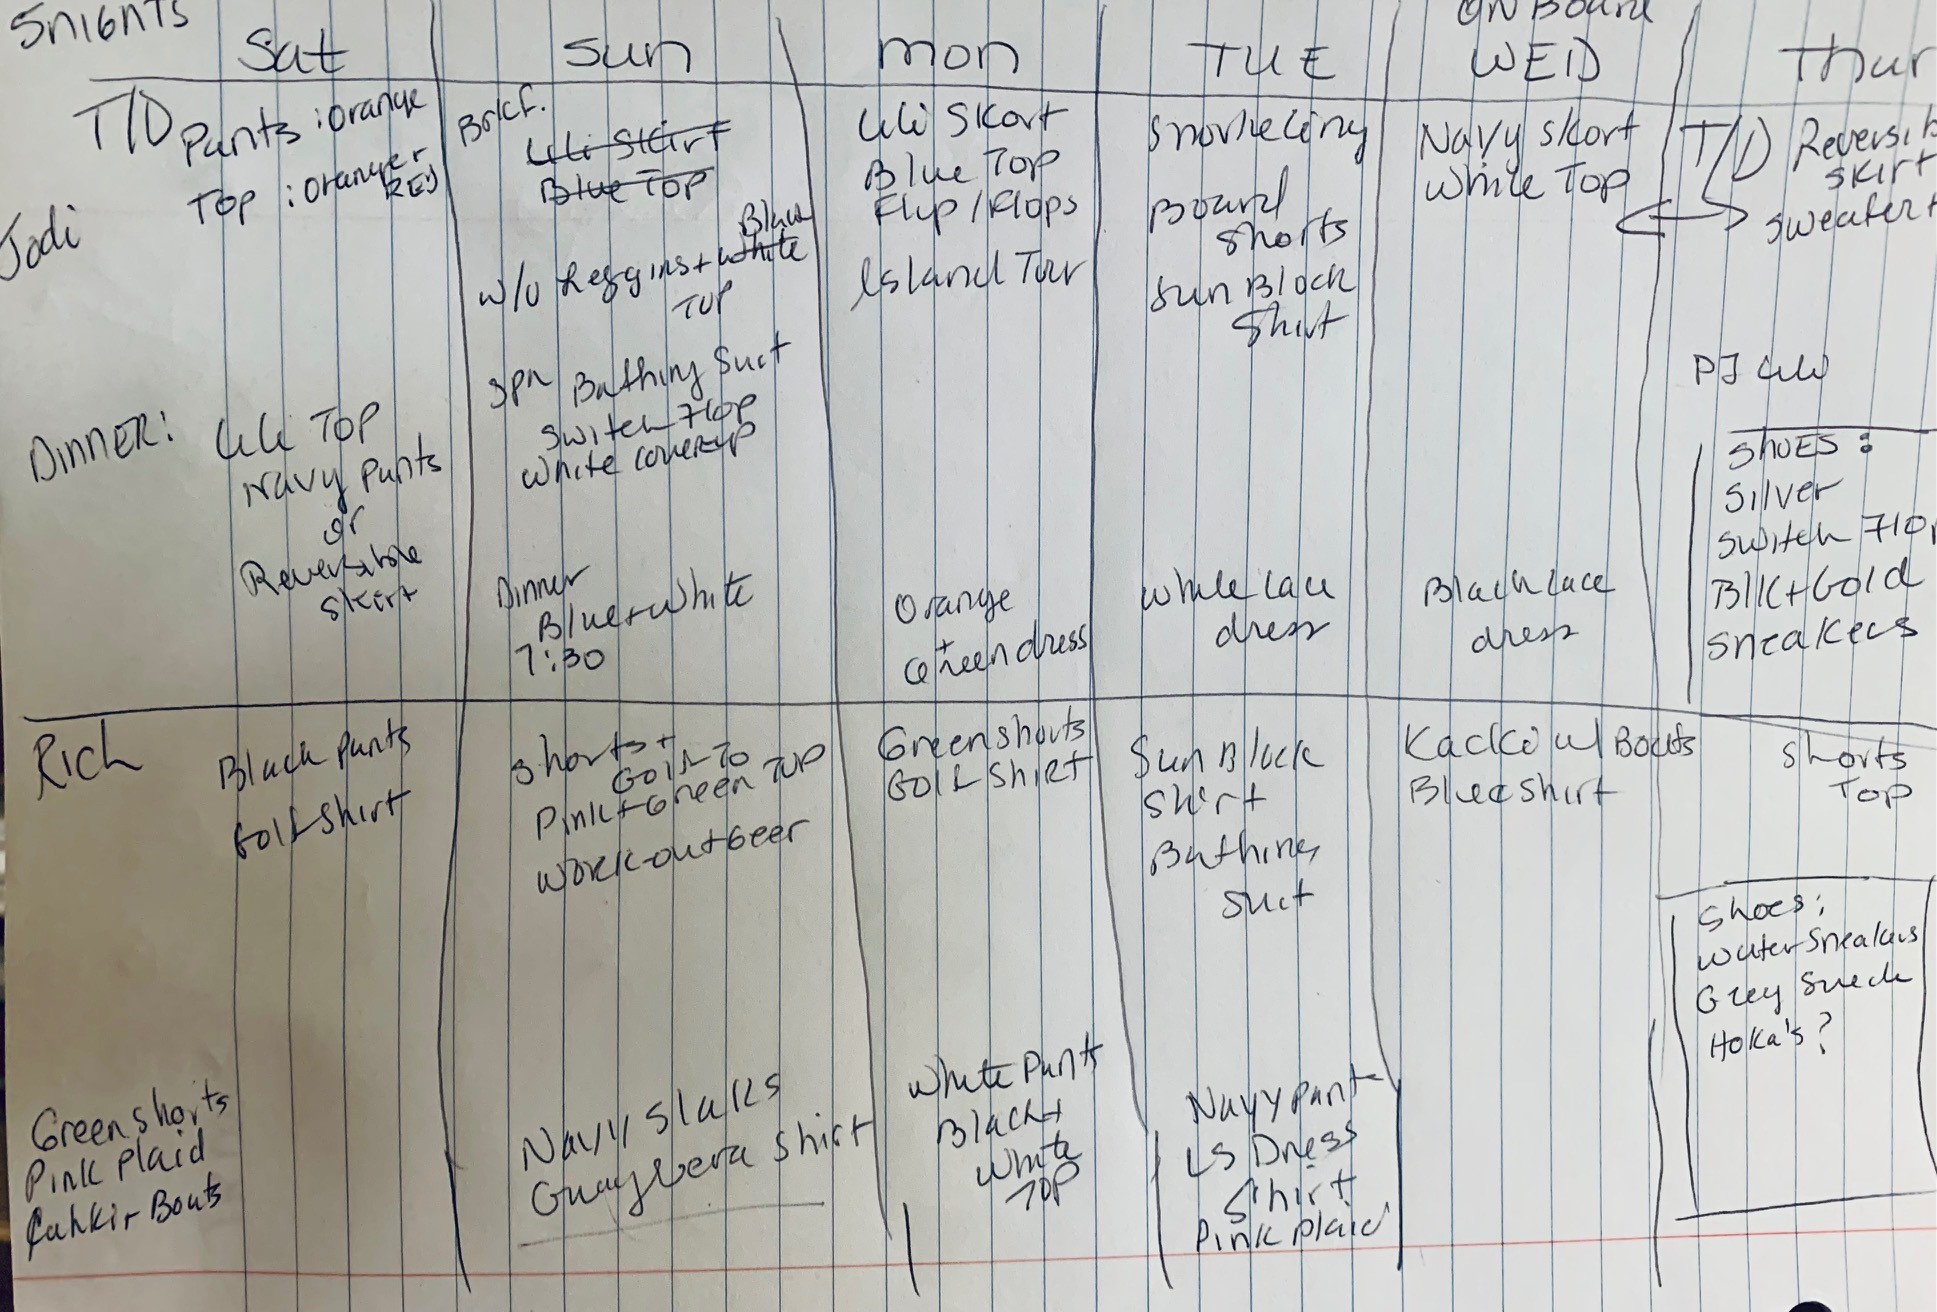 5 nights
Sat
Sun
mon
TUE
ON Board
WED
Thur
T/D
Pants : Orange
Top : Orange
RED
Jodi
Brkf.
Lili Skirt
Blue Top
Black
w/o Leggins + White
Top
3pm Bathing Suit
Switch Flop
White coverup
Lili Skort
Blue Top
Flip/Flops
Island Tour
Snorkeling
Board
Shorts
Sun Block
Shirt
Navy Skort
White Top
T/D Reversib
Skirt
Sweater +
PJ Lili
DINNER:
Lili TOP
Navy Pants
or
Reversible
Skirt
Dinner
Blue + White
7:30
Orange
+
Green dress
White Lace
dress
Black Lace
dress
SHOES :
Silver
Switch Flop
Blk + Gold
Sneakers
Rich
Black Pants
Golf Shirt
Shorts +
Golf To
Pink + Green TOP
Work-out Geer
Green shorts
Golf Shirt
Sun Block
Shirt
Bathing
Suit
Kacki w/ Boats
Blue Shirt
Shorts
Top
Shoes:
Water Sneakers
Grey Suede
Hoka's ?
Green shorts
Pink Plaid
Boats
Navy Slaks
Guaybera Shirt
White Pants
Black +
White
TOP
Navy Pant
LS Dress
Shirt
Pink plaid